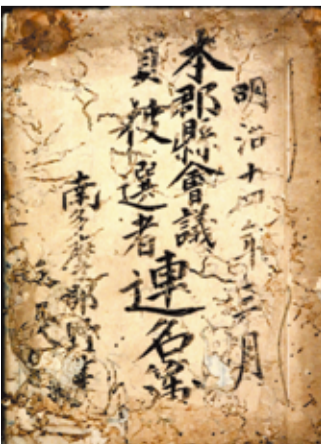 明治十四年三月
本郡縣會議
員被選者連名簿
南多摩郡野津